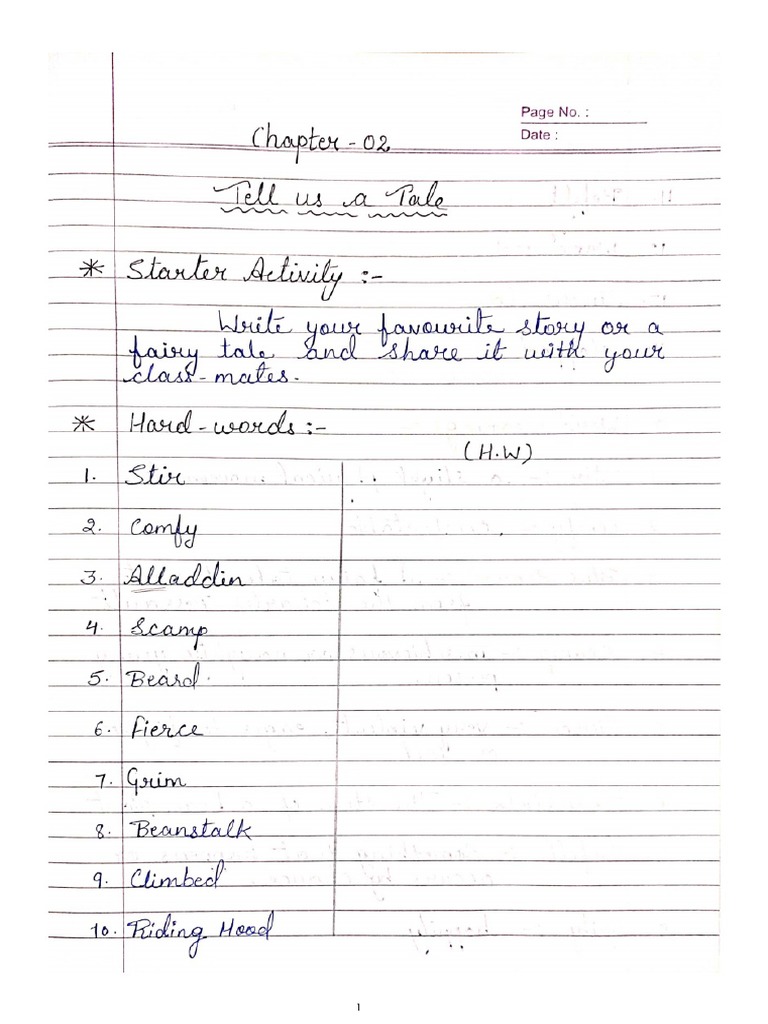 Page No. :
Date :
Chapter - 02
Tell us a Tale
* Starter Activity :-
Write your favourite story or a
fairy tale and share it with your
class-mates.
* Hard-words :-
(H.W)
1. Stir
2. Comfy
3. Alladdin
4. Scamp
5. Beard
6. Fierce
7. Grim
8. Beanstalk
9. Climbed
10. Riding Hood
1